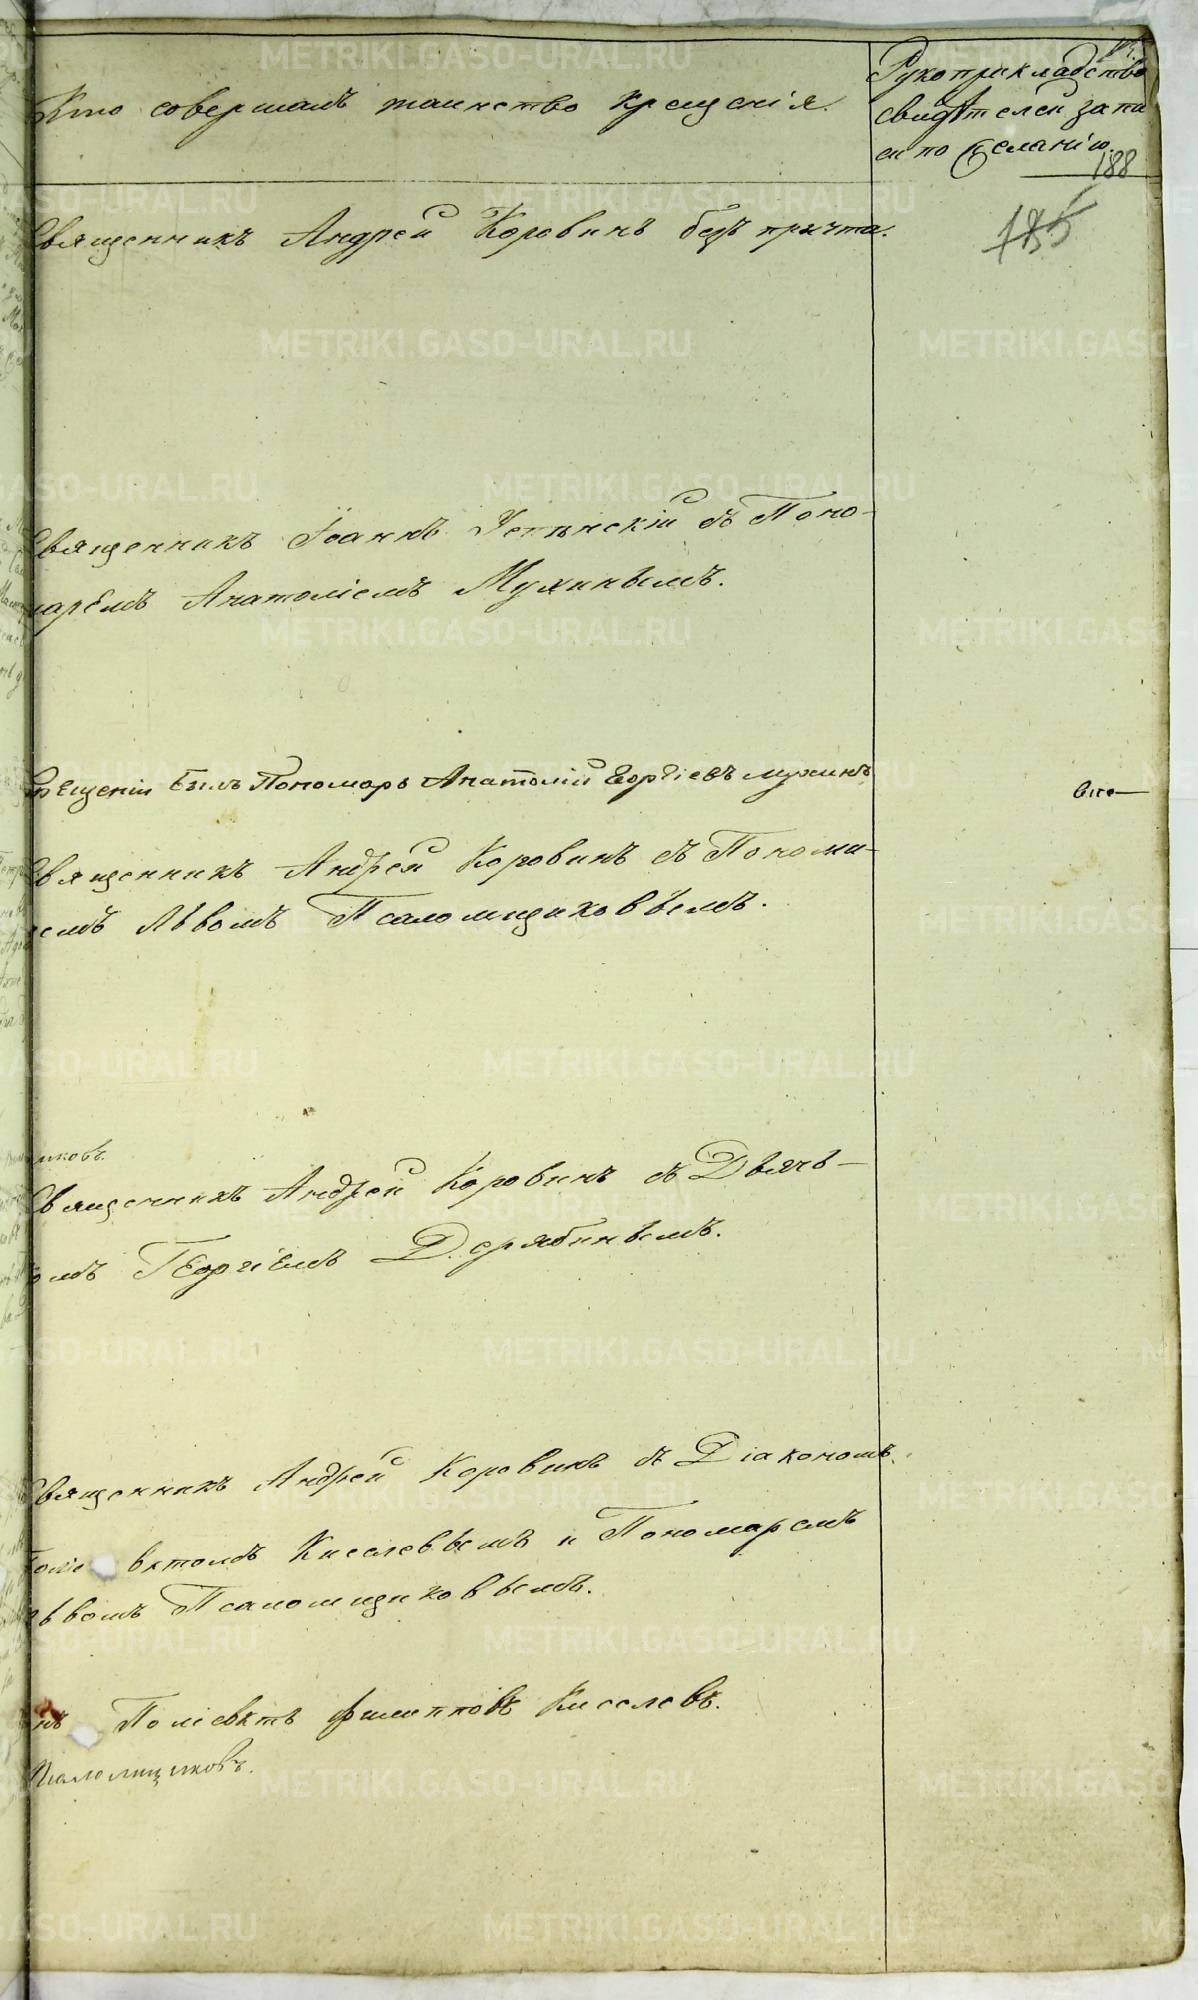 Кто совершалъ таинство крещенія.
Рукоприкладство
свидѣтелей запи
си по желанію.
188
185
Священникъ Андрей Коровинъ безъ причта.
Священникъ Іоаннъ Успенскій съ Поно-
марёмъ Анатоліемъ Мухинымъ.
Крещеніи былъ Пономарь Анатолій Еоргіевъ Мухинъ
Священникъ Андрей Коровинъ съ Понома-
ремъ Львомъ Псаломщиковымъ.
Священникъ Андрей Коровинъ съ Дьячь-
комъ Георгіемъ Дерябинымъ.
Священникъ Андрей Коровинъ съ Діакономъ
Поліевктомъ Киселевымъ и Пономаремъ
Львомъ Псаломщиковымъ.
нъ Поліевктъ Филипповъ Киселевъ.
Псаломщиковъ.
METRIKI.GASO-URAL.RU